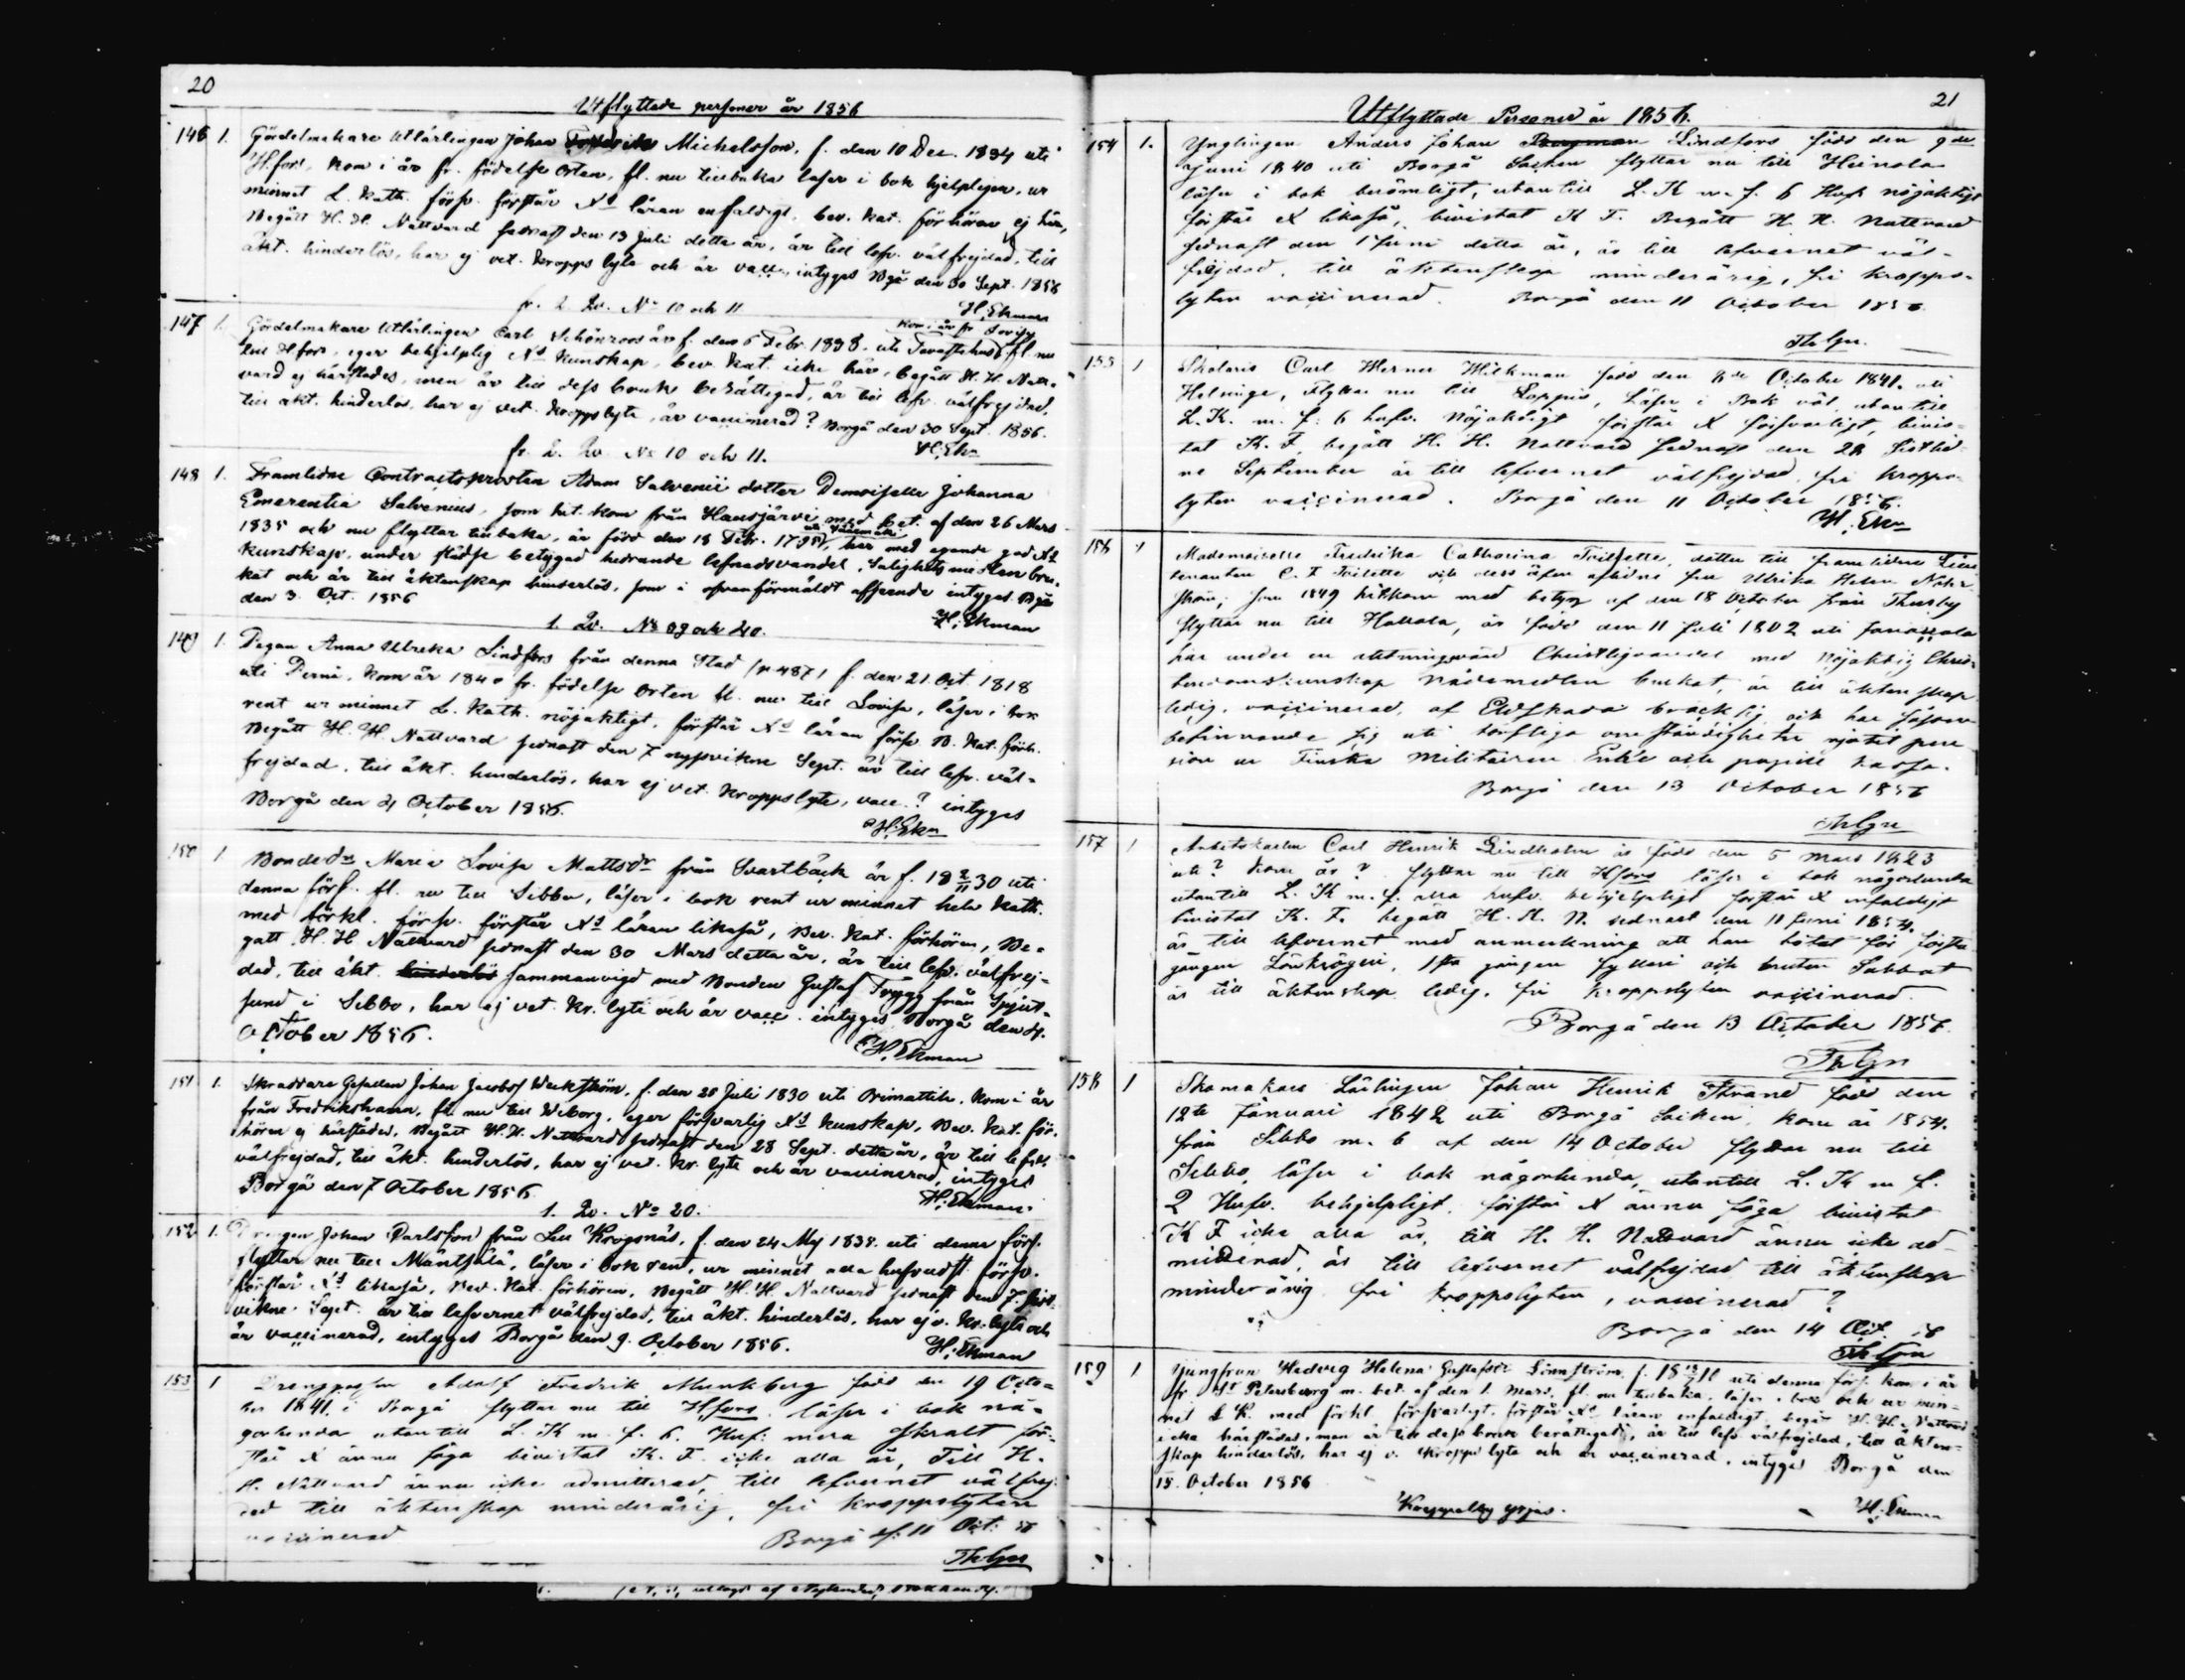 20
Utflyttade personer år 1856
146 1. Gördelmakare Utlärlingen Johan Fredrik Michelsson, f. den 10 Dec. 1834 uti
Hfors, kom i år fr. födelse Orten, fl. nu tillbaka läser i bok hjelpligen, ur
minnet L. Kath. försv. förstår Xd läran enfaldigt, bev. Kat. förhören ej här,
Begått H. H. Nattvard sednast den 13 Juli detta år, är till lefv. välfrejdad, till
äkt. hinderlös, har ej vet. kropps lyte och är vacc., intygas Bgå den 30 Sept. 1856
fr. 2. Qv. No 10 och 11 H. Ekman
kom i år fr Lovisa
147 1. Gördelmakare Utlärlingen Carl Schönroos är f. den 6 Febr. 1838. uti Tavastehus fl. nu
till Hfors, eger behjelplig Xd Kunskap, bev. Kat. icke här, begått H. H. Natt-
vard ej härstädes, men är till dess bruk berättigad, är till lefv. välfrejdad,
till äkt. hinderlös, har ej vet. kropps lyte, är vaccinerad? Borgå den 30 Sept. 1856.
fr. 2. Qv. No 10 och 11. H: Ekn
148 1. Framlidne Contractsprosten Adam Salvenii dotter Demoiselle Johanna
Emerentia Salvenius, som hit kom från Hausjärvi med bet. af den 26 Mars
1835 och nu flyttar tillbaka, är född den 18 Febr. 1798, har med egande god Xd
kunskap, under städse betygad hedrande lefnadsvandel, Salighets medlen bru-
kat och är till äktenskap hinderlös, som i ofvanförmäldt afseende intygas Bgå
den 3. Oct. 1856
1. Qv. No 39 och 40. H: Ekman
149 1. Pigan Anna Ulrika Lindfors från denna Stad /p 487/ f. den 21. Oct. 1818
uti Perno, kom år 1840 fr. födelse Orten fl. nu till Lovisa, läser i bok
rent ur minnet L. Kath. nöjaktigt, förstår Xd läran försv. B. Kat. förh.
Begått H. H. Nattvard sednast den 7 nyssvikne Sept. är till lefv. väl-
frejdad, till äkt. hinderlös, har ej vet. kroppslyte, vacc.? intygas
Borgå den 4 October 1856.
H: Ekn
150 1 Bonded:r Maria Lovisa Mattsdr från Svartbäck är f. 18 2/11 30 uti
denna förs. fl. nu till Sibbo, läser i bok rent ur minnet hela Kath.
med förkl. försv. förstår Xd läran likaså, Bev. Kat. förhören, Be-
gått H. H Nattvard sednast den 30 Mars detta år, är till lefv. välfrej-
dad, till äkt. hinderlös sammanvigd med Bonden Gustaf Trygg från Spjut-
sund i Sibbo, har ej vet. kr. lyte och är vacc. intygas Borgå den 4.
October 1856.
H. Ekman
151 1. Skräddare Gesällen Johan Jacobss Weckström, f. den 20 Juli 1830 uti Orimattila. kom i år
från Fredrikshamn, fl. nu till Wiborg, eger försvarlig Xd kunskap, Bev. Kat. för-
hören ej härstädes, Begått H. H. Nattvard sednast den 28 Sept. detta år, är till lefv.
välfrejdad, till äkt. hinderlös, har ej vet. kr. lyte och är vaccinerad, intygas
Borgå den 7 October 1856
1. Qv. No 20. H: Ekman
152 1. Drengen Johan Carlsson från Krogsnäs, f. den 24 Maj 1838. uti denna förs.
flyttar nu till Mäntsälä, läser i bok rent, ur minnet alla hufvudst. försv.
förstår Xd likaså, Bev. Kat. förhören, Begått H. H. Nattvard sednast den 7. sist-
vikne Sept. är till lefvernet välfrejdad, till äkt. hinderlös, har ej v. kr. lyte och
är vaccinerad, intygas Borgå den 9. October 1856. H: Ekman
153 1 Drenggossen Adolf Fredrik Munkberg född den 19 Octo-
ber 1841. i Borgå flyttar nu till Hfors läser i bok nå-
gorlunda utantill L. K m. f. 6. Huf: mera skralt för-
står X ännu föga bivistat K. F. icke alla år, Till H.
H. Nattvard ännu icke admitterad, till lefvernet välfrej-
dad till äktenskap minderårig, fri kroppslyten
vaccinerad Borgå d: 11 Oct: 56

21
Utflyttade Personer år 1856.
154 1. Ynglingen Anders Johan Lindfors född den 9de
Juni 1840 uti Borgå Socken flyttar nu till Heinola
läser i bok berömligt, utantill L. K m. f. 6 Huf. nöjaktigt
förstår X likaså, bivistat K F. Begått H. H. Nattvard
sednast den 1 Juni detta år, är till lefvernet väl-
frejdad, till äktenskap minderårig, fri kropps-
lyten vaccinerad. Borgå den 11 October 1856.
155 1 Skolaris Carl Werner Hickman född den 8de October 1841. uti
Helsinge, Flyttar nu till Loppis, läser i Bok väl, utantill
L. K. m. f: 6 hufv. nöjaktigt förstår X försvarligt, bivis-
tat K. F. begått H. H. Nattvard sednast den 28 sistlid-
ne September är till lefvernet välfrejdad, fri kropps-
lyten vaccinerad. Borgå den 11 October 1856.
H. Ekn
156 1 Mademoiselle Fredrika Catharina Toilette, dotter till framlidne Lieu-
tenanten C. F Toilette och dess äfven aflidne fru Ulrika Helen
som 1849 hitkom med betyg af den 18 October från Thusby
flyttar nu till Hattula, är född den 11 Juli 1802 uti Janakkala
har under en aktningsvärd Christligvandel med nöjaktig Chris-
tendomskunskap nådemedlen brukat, är till äktenskap
ledig, vaccinerad, af Eldskada bräcklig och har såsom
befinnande sig uti torftiga omständigheter njutit pen-
sion ur Finska Militairens Enke och pupill kassa.
Borgå den 13 October 1856
157 1 Arbetskarlen Carl Henrik Lindholm är född den 5 Mars 1823
uti? kom år? flyttar nu till Hfors läser i bok någorlunda
utantill L. K m. f. alla hufv. behjelpligt förstår X enfaldigt
bivistat K. F. begått H. H. N. sednast den 11 Juni 1854.
är till lefvernet med anmerkning att han bötat för första
gången Lönkrögeri, 1sta gången fylleri och brutin Sabbat
är till äktenskap ledig, fri kroppslyten vaccinerad.
Borgå den 13 October 1856.
158 1 Skomakare Lärlingen Johan Henrik Strand född den
12te Januari 1842 uti Borgå Socken, kom år 1854.
från Sibbo m. b af den 14 October flyttar nu till
Sibbo, läser i bok någorlunda, utantill L. K m f.
2 Hufv. behjelpligt, förstår X ännu föga bivistat
K F icke alla år, till H. H. Nattvard ännu icke ad-
mitterad, är till lefvernet välfrejdad till äktenskap
minderårig fri kroppslyten, vaccinerad?
Borgå den 14 Oct. 56
159 1 Jungfrun Hedvig Helena Gustafsdr Lönnström, f. uti denna förs. kom i år
fr St Petersborg m. bet. af den 1. Mars, fl. nu tillbaka, läser i bok och ur min-
net L K. med förkl. försvarligt, förstår Xd läran enfaldigt, begår H. H. Nattvard
icke härstädes, men är till dess bruk berättigad, är till lefv. välfrejdad, till äkten-
skap hinderlös, har ej v. kropps lyte och är vaccinerad, intygas Borgå den
15. October 1856
H: Ekman